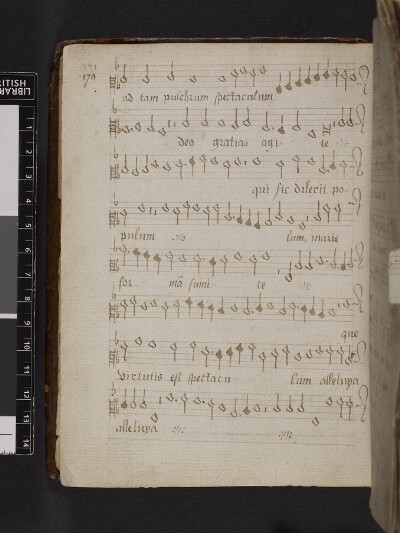 170
ad tam pulchrum spectaculum
deo gratias agi- te
qui sic dilexit po-
pulum
for- mā sumi te
que
virtutis est spectacu- lum alleluya
alleluya
LIBRARY
1
2
3
4
5
6
7
8
9
10
11
12
13
14